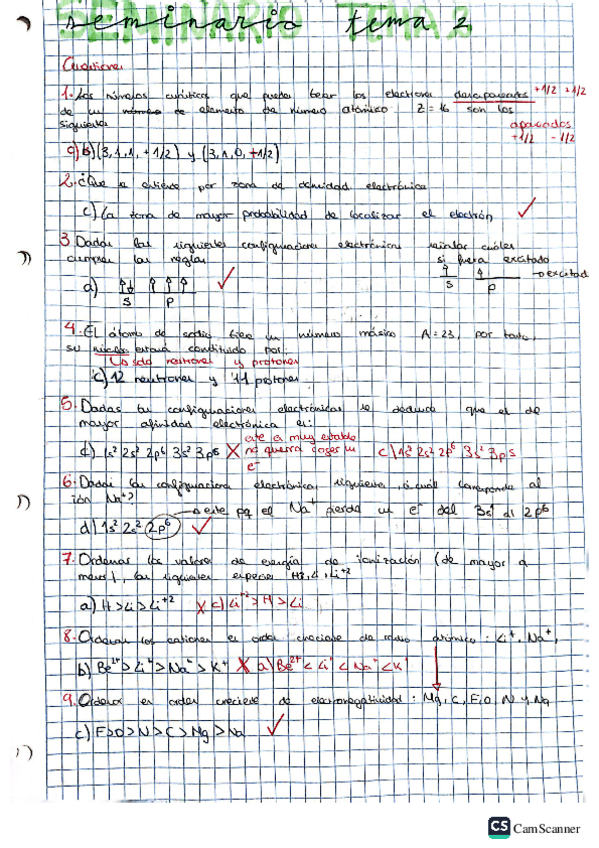 SEMINARIO
seminario tema 2
Cuestiones
1. Los números cuánticos que pueden tener los electrones desapareados +1/2 +1/2
de un número de elemento de número atómico Z = 16 son los
siguientes apareados
+1/2 -1/2
c) b) (3,1,1,+1/2) y (3,1,0,+1/2)
2. ¿Que se entiende por zona de densidad electrónica
c) La zona de mayor probabilidad de localizar el electrón ✓
3. Dadas las siguientes configuraciones electrónicas señalar cuáles
cumplen las reglas si fuera excitado
a) ✓ → excitad
s p s p
4. El átomo de sodio tiene un número másico A = 23, por tanto,
su núcleo estará constituido por:
↳ solo neutrones y protones
c) 12 neutrones y 11 protones
5. Dadas las configuraciones electrónicas se deduce que el de
mayor afinidad electrónica es:
d) 1s² 2s² 2p⁶ 3s² 3p⁶ X este es muy estable no querrá coger un e⁻ c) 1s² 2s² 2p⁶ 3s² 3p⁵
6. Dadas las configuraciones electrónicas siguientes, ¿cuál corresponde al
ión Na⁺? → este pq el Na⁺ pierde un e⁻ del 3s¹ al 2p⁶
d) 1s² 2s² 2p⁶ ✓
7. Ordenar los valores de energía de ionización (de mayor a
menor), las siguientes especies H, Li, Li⁺²
a) H > Li > Li⁺² X c) Li⁺² > H > Li
8. Ordenar los cationes en orden creciente de radio atómico: Li⁺, Na⁺,
b) Be²⁺ > Li⁺ > Na⁺ > K⁺ X a) Be²⁺ < Li⁺ < Na⁺ < K⁺
9. Ordenar en orden creciente de electronegatividad: Mg, C, F, O, N y Na
c) F > O > N > C > Mg > Na ✓
CS CamScanner